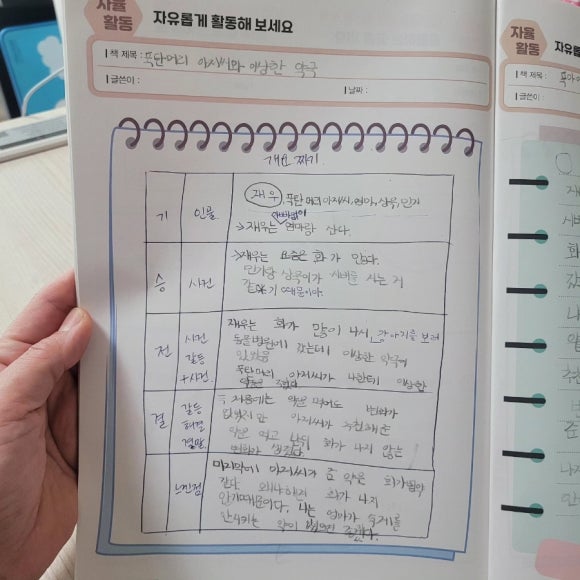 자율
활동
자유롭게 활동해 보세요
책 제목 : 폭탄머리 아저씨와 이상한 약국
글쓴이 :
날짜 :
개요 짜기
기 인물
재우, 폭탄 머리 아저씨, 엄마, 상욱, 민기
아빠없이
→재우는 엄마랑 산다.
승 사건
→재우는 요즘은 화가 난다.
민기랑 상욱이가 시비를 거는 거
같았기 때문이다.
전 사건
갈등
+사건
재우는 화가 많이 나서, 강아지를 보러
동물병원에 갔는데 이상한 약국이
있었음
폭탄머리 아저씨가 나한테 이상한
약을 줬다
결 갈등
해결
결말
처음에는 약을 먹어도 변화가
없었지만 아저씨가 추천해준
약을 먹고 난뒤 화가 나지 않는
변화가 생겼다
느낀점
마지막에 아저씨가 준 약은
같다 왜냐하면 화가 나지
안기때문이다. 나는 엄마가 숙제를
안시키는 약이 있으면 좋겠다.
자율
활동
자유롭
책 제목 :
글쓴이 :